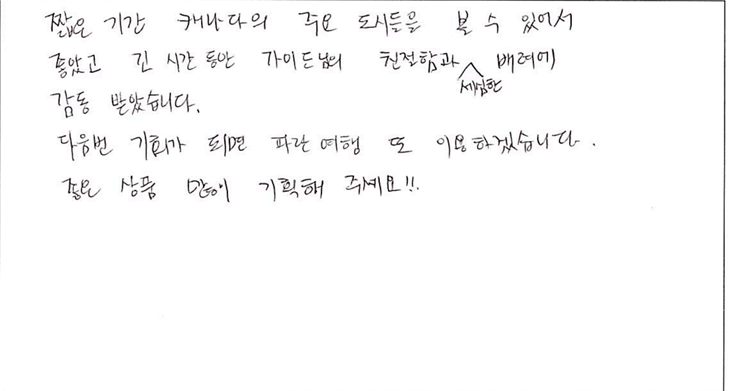 짧은 기간 캐나다의 주요 도시들을 볼 수 있어서
좋았고 긴 시간 동안 가이드님의 친절함과 세심한 배려에
감동 받았습니다.
다음번 기회가 되면 파란여행 또 이용하겠습니다.
좋은 상품 많이 기획해 주세요!!